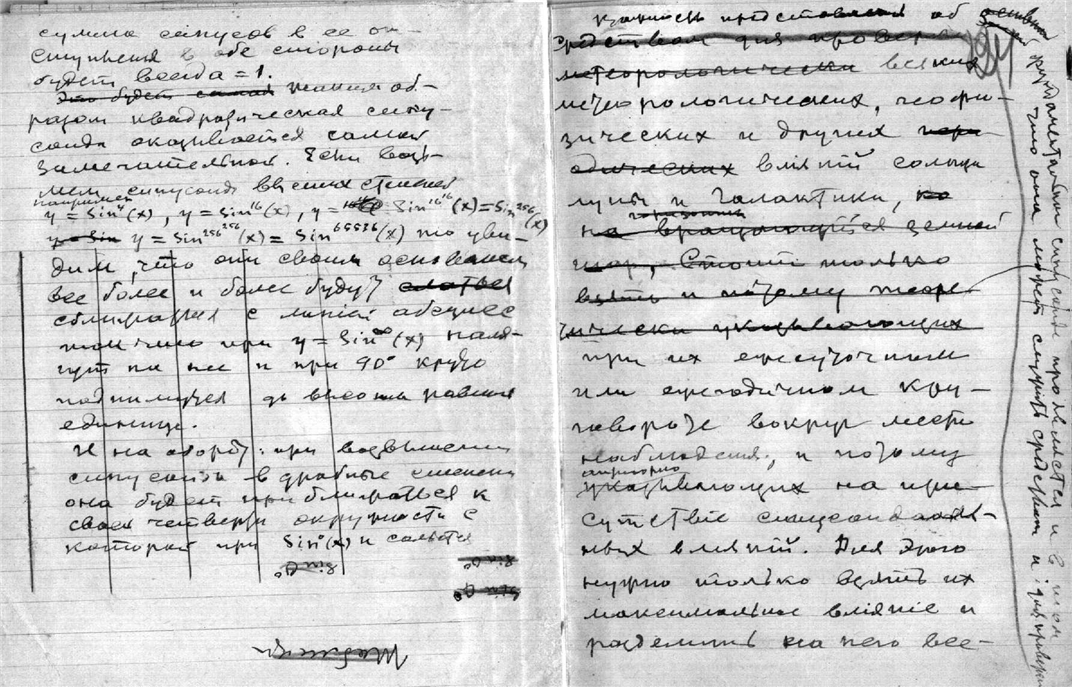 сумма синусов в ее от-
ступления в обе стороны
будет всегда = 1.
Это будет самая таким об-
разом квадратическая сину-
соида оказывается самой
замечательной. Если возь-
мем синусоиды высших степеней
например
y = Sin⁴(x), y = Sin¹⁶(x), y = Sin¹⁶¹⁶(x) = Sin²⁵⁶(x)
y = Sin y = Sin²⁵⁶²⁵⁶(x) = Sin⁶⁵⁵³⁶(x) то уви-
дим, что они своим основанием
все более и более будут
сближаться с линией абсцисс
y = Sin^∞(x)
и при 90° круто
поднимутся до высоты равной
единице.
И на оборот: при возвышении
синусоиды в дробные степени
она будет приближаться к
своей четверти окружности с
которой при Sin⁰(x) и сольется
Sin 0°
Sin 0°
Sin 0°
об
средством для
метеорологически всяких
метеорологических, геофи-
зических и других пери-
одических влияний солнца
луны и Галактики, на
горизонты
на вращающийся земной
шар, Стоит только
взять и потому теоре-
тически указывающих
при их ежесуточном
или ежегодичном кру-
говороте вокруг места
наблюдения, и потому
априорно
указывающих на при-
сутствие синусоидаль-
ных влияний. Для этого
нужно только взять их
максимальное влияние и
разделить на него все-
фундаментальной синусоиде проявляется и в том
что она может служить средством и для проверки